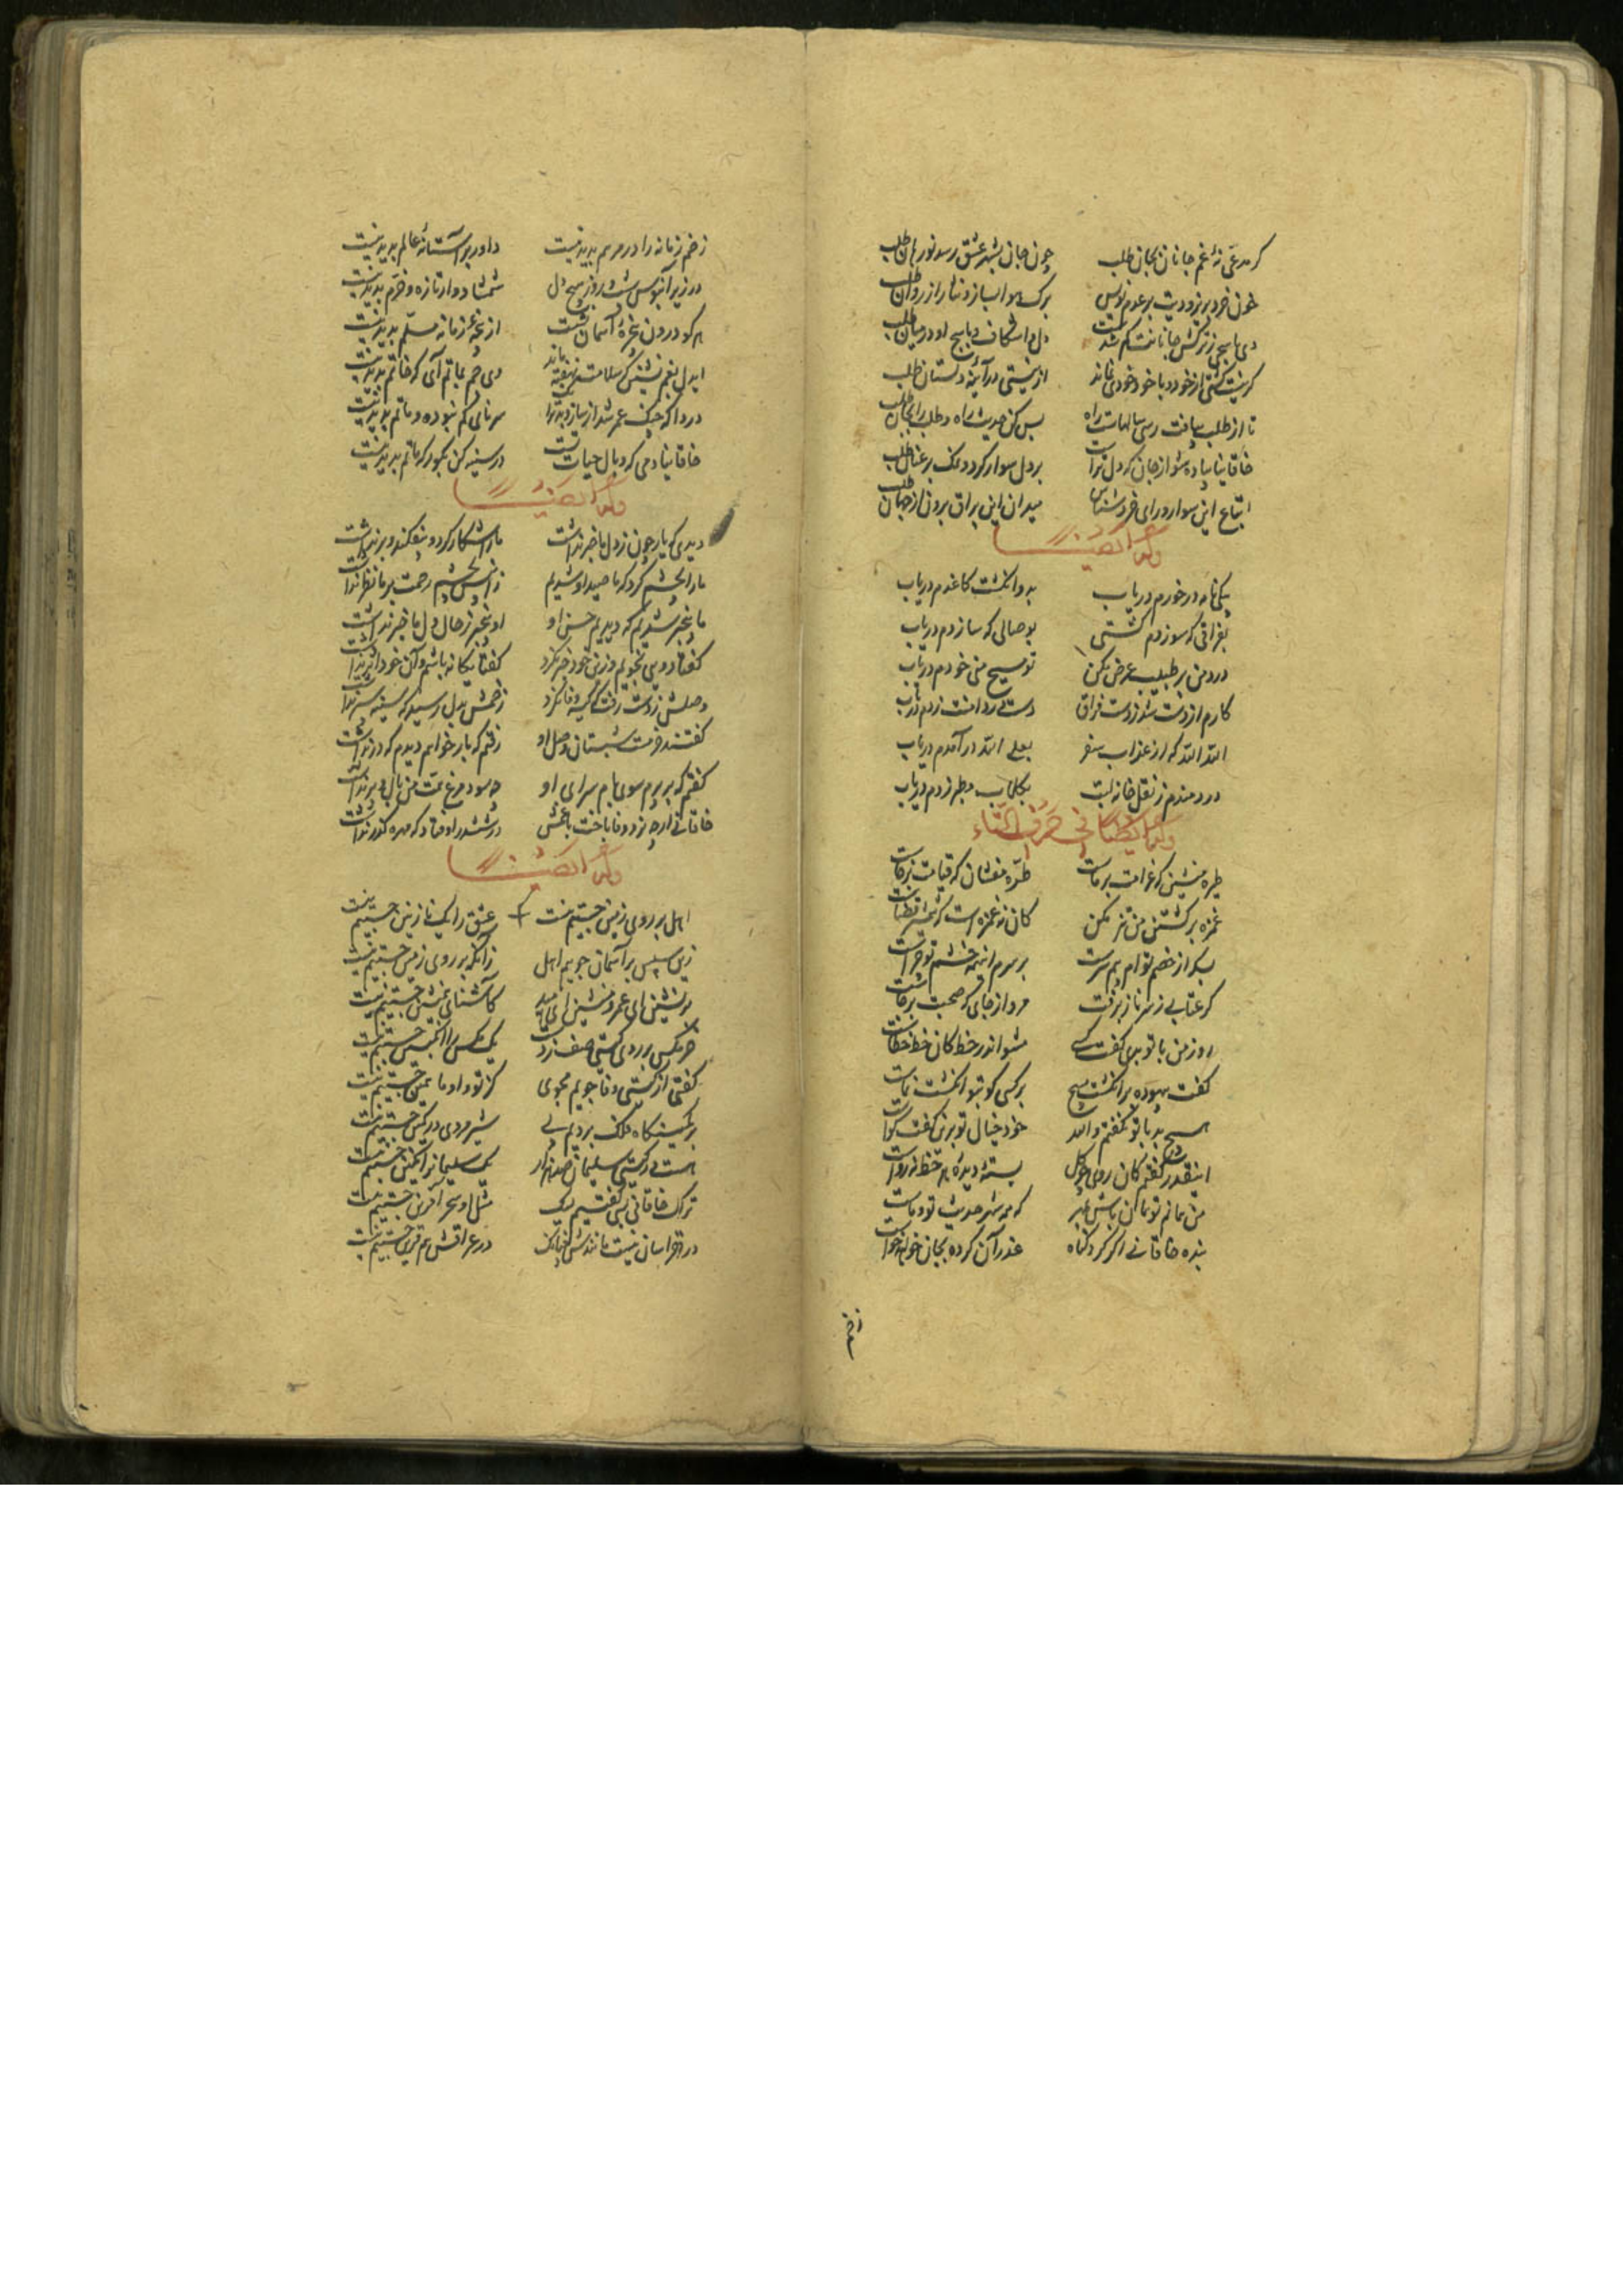 گر مدعی نهٔ غم جانان بجان طلب چون جان بشهر عشق رسد نورهان طلب
خون خرد بریز و دیت بر عدم نویس برگ هوا بساز و نثار از روان طلب
دی یاسجی ز ترکش جانانت گم شدست دل واشکاف و یاسج او در میان طلب
گر نیست گشتی از خود و با خود خودی نماند از نیستی در آینه دلستان طلب
تا از طلب بیافت رسی سالهاست راه بس کن حدیث راه و طلب رایگان طلب
خاقانیا پیاده شو از جان که دل تراست بر دل سوار گرد و فلک در عنان طلب
اتباع این سوار ورای خرد شناس میدان این براق برون از جهان طلب
وله ایضاً
بیکی نامه در خورم دریاب به دو انگشت کاغذم دریاب
بفراقی که سوزدم کشتی بوصالی که سازدم دریاب
درد من بر طبیب عرض مکن تو مسیح منی خودم دریاب
کارم از دست شد ز دست فراق دست در دامنت زدم دریاب
الله الله که از عذاب سفر بعلی الله درآمدم دریاب
دردمندم ز نقل خانه لبت بگلاب و طبرزدم دریاب
وله ایضاً فی حرف التاء
طیره منشین که غرامت بر ماست طره مفشان که قیامت برخاست
غمزه بر کشتن من تیز مکن کان نه غمزه است که شمشیر قضاست
بس که از خصم توام بیم سرست بر سرم این همه خشم تو چراست
گر عتابی ز سر ناز برفت مرو از جای که صحبت برجاست
روز من با تو بدی گفت کسی مشو اندر خط کان خط خطاست
گفت بیهوده بر انگشت مپیچ بر کسی کو بتو انگشت نماست
هیچ بد با تو نگفتم والله خود خیال تو برین گفت گواست
اینقدر گفتم کان روی چو گل بسته دیدهٔ هر خط نه رواست
من همانم تو همان باش بمهر که همه شهر حدیث تو و ماست
بنده خاقانی اگر کرد گناه عذر آن کرده بجان خواهد خواست
زخم
زخم زمانه را در مرهم پدید نیست دارو بر آستانهٔ عالم پدید نیست
در زیر آبنوس شب و روز هیچ دل شمشادوار تازه و خرم پدید نیست
هر کو درون غرهٔ آسمان نشست از پنجهٔ زمانه مسلم پدید نیست
ای دل بغم نشین که سلامت نهفته ماند وی جم بماتم آی که خاتم پدید نیست
دردا که چنگ عمر شد از ساز و بدتر سرنای گم نبوده و ماتم پدید نیست
خاقانیا دمی که وبال حیات تست در سینه کن بگور که همدم پدید نیست
وله ایضاً
دیدی که یار چون ز دل ما خبر نداشت ما را شکار کرد و بیفکند و برنداشت
ما را بچشم کرد که تا صید او شدیم زان پس بچشم رحمت بر ما نظر نداشت
ما بیخبر شدیم که دیدیم حسن او او بیخبر ز حال دل ما خبر نداشت
گفتا دویی نجویم وزین خود گذر نکرد گفتا یگانه باشم و آن خود اثر نداشت
وصلش ز دست رفت که کیسه وفا نکرد زخمش بدل رسید که سینه سپر نداشت
گفتند خرمست شبستان وصل او رفتم که بار خواهم دیدم که در نداشت
گفتم که بر پرم سوی بام سرای او چه سود مرغ همت من بال و پر نداشت
خاقانی ارچه نرد وفا باخت با غمش در ششدر اوفتاد که مهره گذر نداشت
وله ایضاً
اهل بر روی زمین جستیم نیست عشق را یک نازنین جستیم نیست
زین سپس بر آسمان جوییم اهل زانکه بر روی زمین جستیم نیست
برنشین ای عمر و منشین ای امید کاشنای همنشین جستیم نیست
خرمگس بر روی گیتی صف زدست یک مگس را انگبین جستیم نیست
گفتی از گیتی وفا جویم مجوی کز تو و او ما همین جستیم نیست
بر کمینگاه فلک بودیم لی شیر مردی در کمین جستیم نیست
هست در گیتی سلیمان صد هزار یک سلیمان را نگین جستیم نیست
ترک خاقانی بسی گفتیم لیک مثل او سحرآفرین جستیم نیست
در خراسان نیست مانندش چنانک در عراقش هم قرین جستیم نیست